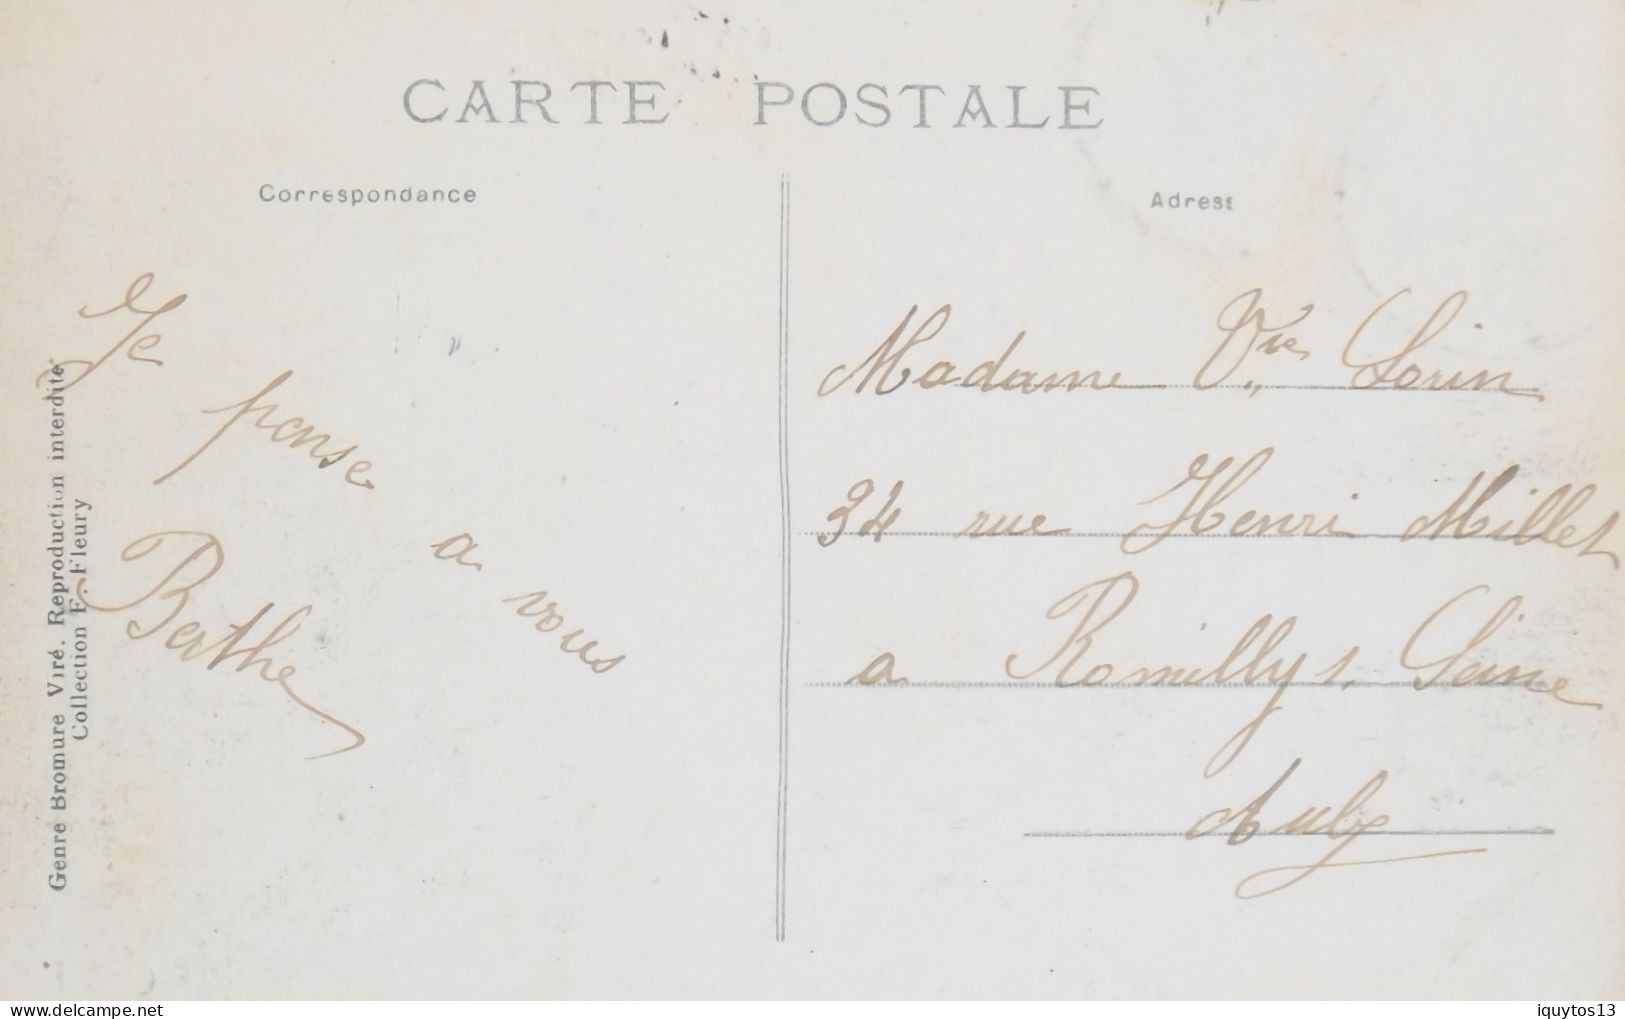 CARTE POSTALE
Correspondance
Adress
Je
pense
a
vous
Berthe
Madame Vve Lorin
34 rue Henri Millet
a Romilly s. Seine
Aube
Genre Bromure Viré. Reproduction interdite
Collection F. Fleury
iquytos13